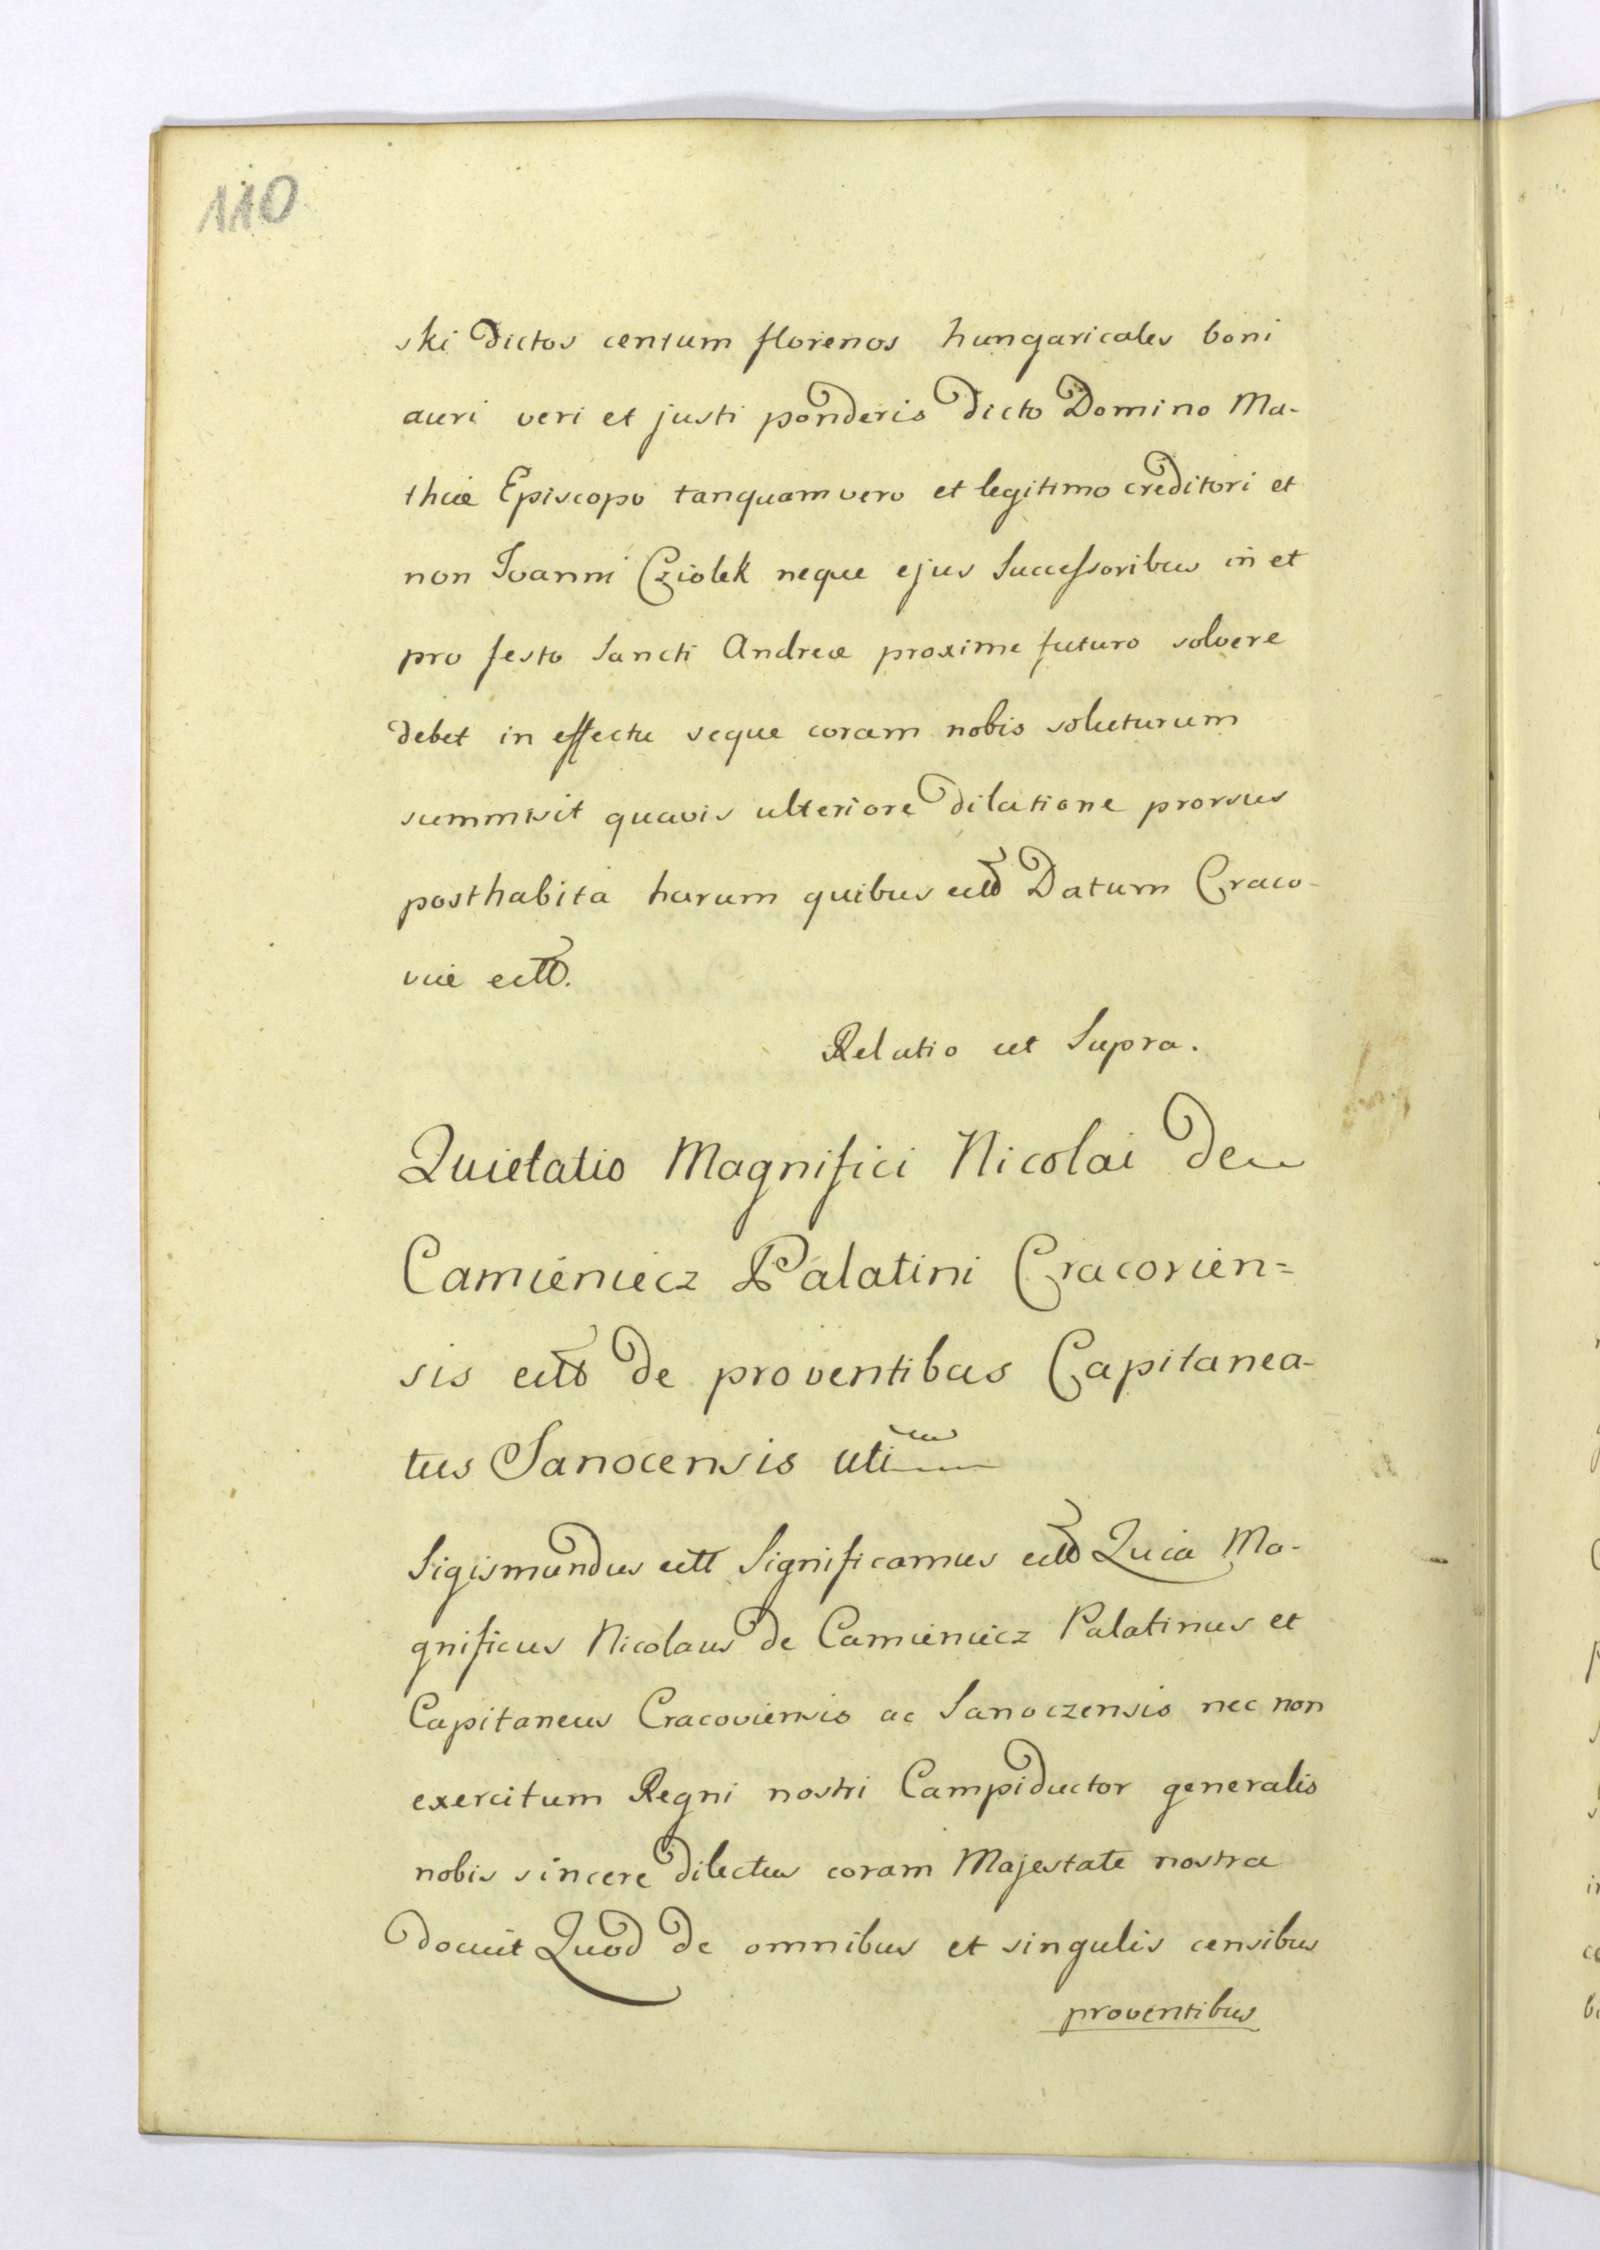 110
ski dictos centum florenos hungaricales boni
auri veri et justi ponderis dicto Domino Ma-
thiæ Episcopo tanquam vero et legitimo creditori et
non Joanni Cziolek neque ejus Successoribus in et
pro festo Sancti Andreæ proxime futuro solvere
debet in effectu seque coram nobis soluturum
summisit quavis ulteriore dilatione prorsus
posthabita harum quibus ectt Datum Craco-
viæ ectt.
Relatio ut Supra.
Quietatio Magnifici Nicolai de
Camieniecz Palatini Cracovien=
sis ectt de proventibus Capitanea-
tus Sanocensis uti
Sigismundus ectt Significamus ectt Quia Ma-
gnificus Nicolaus de Camieniecz Palatinus et
Capitaneus Cracoviensis ac Sanoczensis nec non
exercitum Regni nostri Campiductor generalis
nobis sincere dilectus coram Majestate nostra
docuit Quod de omnibus et singulis censibus
proventibus